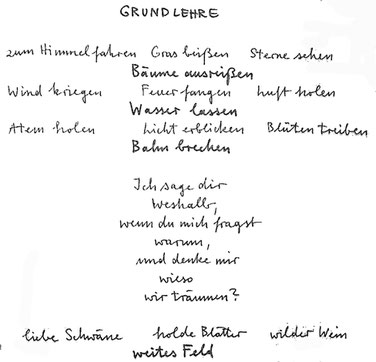 GRUNDLEHRE
zum Himmel fahren Gras beißen Sterne sehen
Bäume ausreißen
Wind kriegen Feuer fangen Luft holen
Wasser lassen
Atem holen Licht erblicken Blüten treiben
Bahn brechen
Ich sage dir
weshalb,
wenn du mich fragst
warum,
und denke mir
wieso
wir träumen?
liebe Schwäne holde Blätter wilder Wein
weites Feld